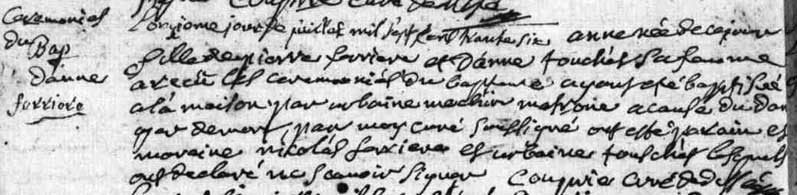 Ceremonies
du Bap
danne
ferriere
L'onzieme jour de juillet mil sept cent trante six anne née de ce jour
fille de pierre ferriere et D'anne touchés sa femme
a reçu les ceremonies du bapteme ayant été baptisée
a la maison par urbaine matrone a cause du dan
ger de mort, par moy curé soussigné ont esté parain et
maraine nicolas ferriere et urbaine touchés lesquels
ont declaré ne scavoir signer curé de